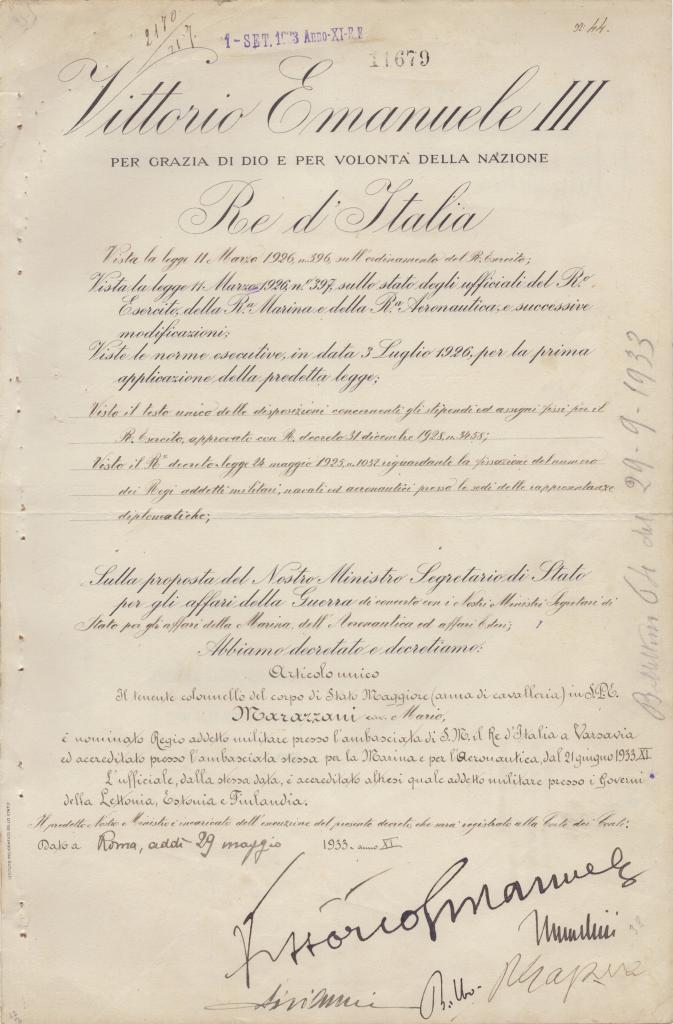 2170
21.7
1-SET.1933 ANNO-XI-E.F
11679
N° 44.
Vittorio Emanuele III
PER GRAZIA DI DIO E PER VOLONTÀ DELLA NAZIONE
Re d'Italia
Vista la legge 11 Marzo 1926, n. 396, sull'ordinamento del R. Esercito;
Vista la legge 11 Marzo 1926, n.° 397, sullo stato degli ufficiali del R.°
Esercito, della R.ª Marina e della R.ª Aeronautica, e successive
modificazioni;
Viste le norme esecutive, in data 3 Luglio 1926, per la prima
applicazione della predetta legge;
Visto il testo unico delle disposizioni concernenti gli stipendi ed assegni fissi per il
R. Esercito, approvati con R. decreto 31 dicembre 1928, n. 3458;
Visto il R° decreto-legge 24 maggio 1925, n. 1032 riguardante la fissazione del numero
dei Regi addetti militari, navali ed aeronautici presso le sedi delle rappresentanze
diplomatiche;
Sulla proposta del Nostro Ministro Segretario di Stato
per gli affari della Guerra di concerto con i Nostri Ministri Segretari di
Stato per gli affari della Marina, dell'Aeronautica ed affari Esteri;
Abbiamo decretato e decretiamo:
Articolo unico
Il tenente colonnello del corpo di Stato Maggiore (arma di cavalleria) in S.P.E.
Marazzani cav. Mario,
è nominato Regio addetto militare presso l'ambasciata di S.M. il Re d'Italia a Varsavia
ed accreditato presso l'ambasciata stessa per la Marina e per l'Aeronautica, dal 21 giugno 1933.XI
L'ufficiale, dalla stessa data, è accreditato altresì quale addetto militare presso i Governi
della Lettonia, Estonia e Finlandia.
Il predetto Nostro Ministro è incaricato dell'esecuzione del presente decreto, che sarà registrato alla Corte dei Conti.
Dato a Roma, addì 29 maggio 1933 - anno XI
Vittorio Emanuele
Mussolini
Sirianni
Balbo
Bollettino 64 del 29-9-1933
ISTITUTO POLIGRAFICO DELLO STATO